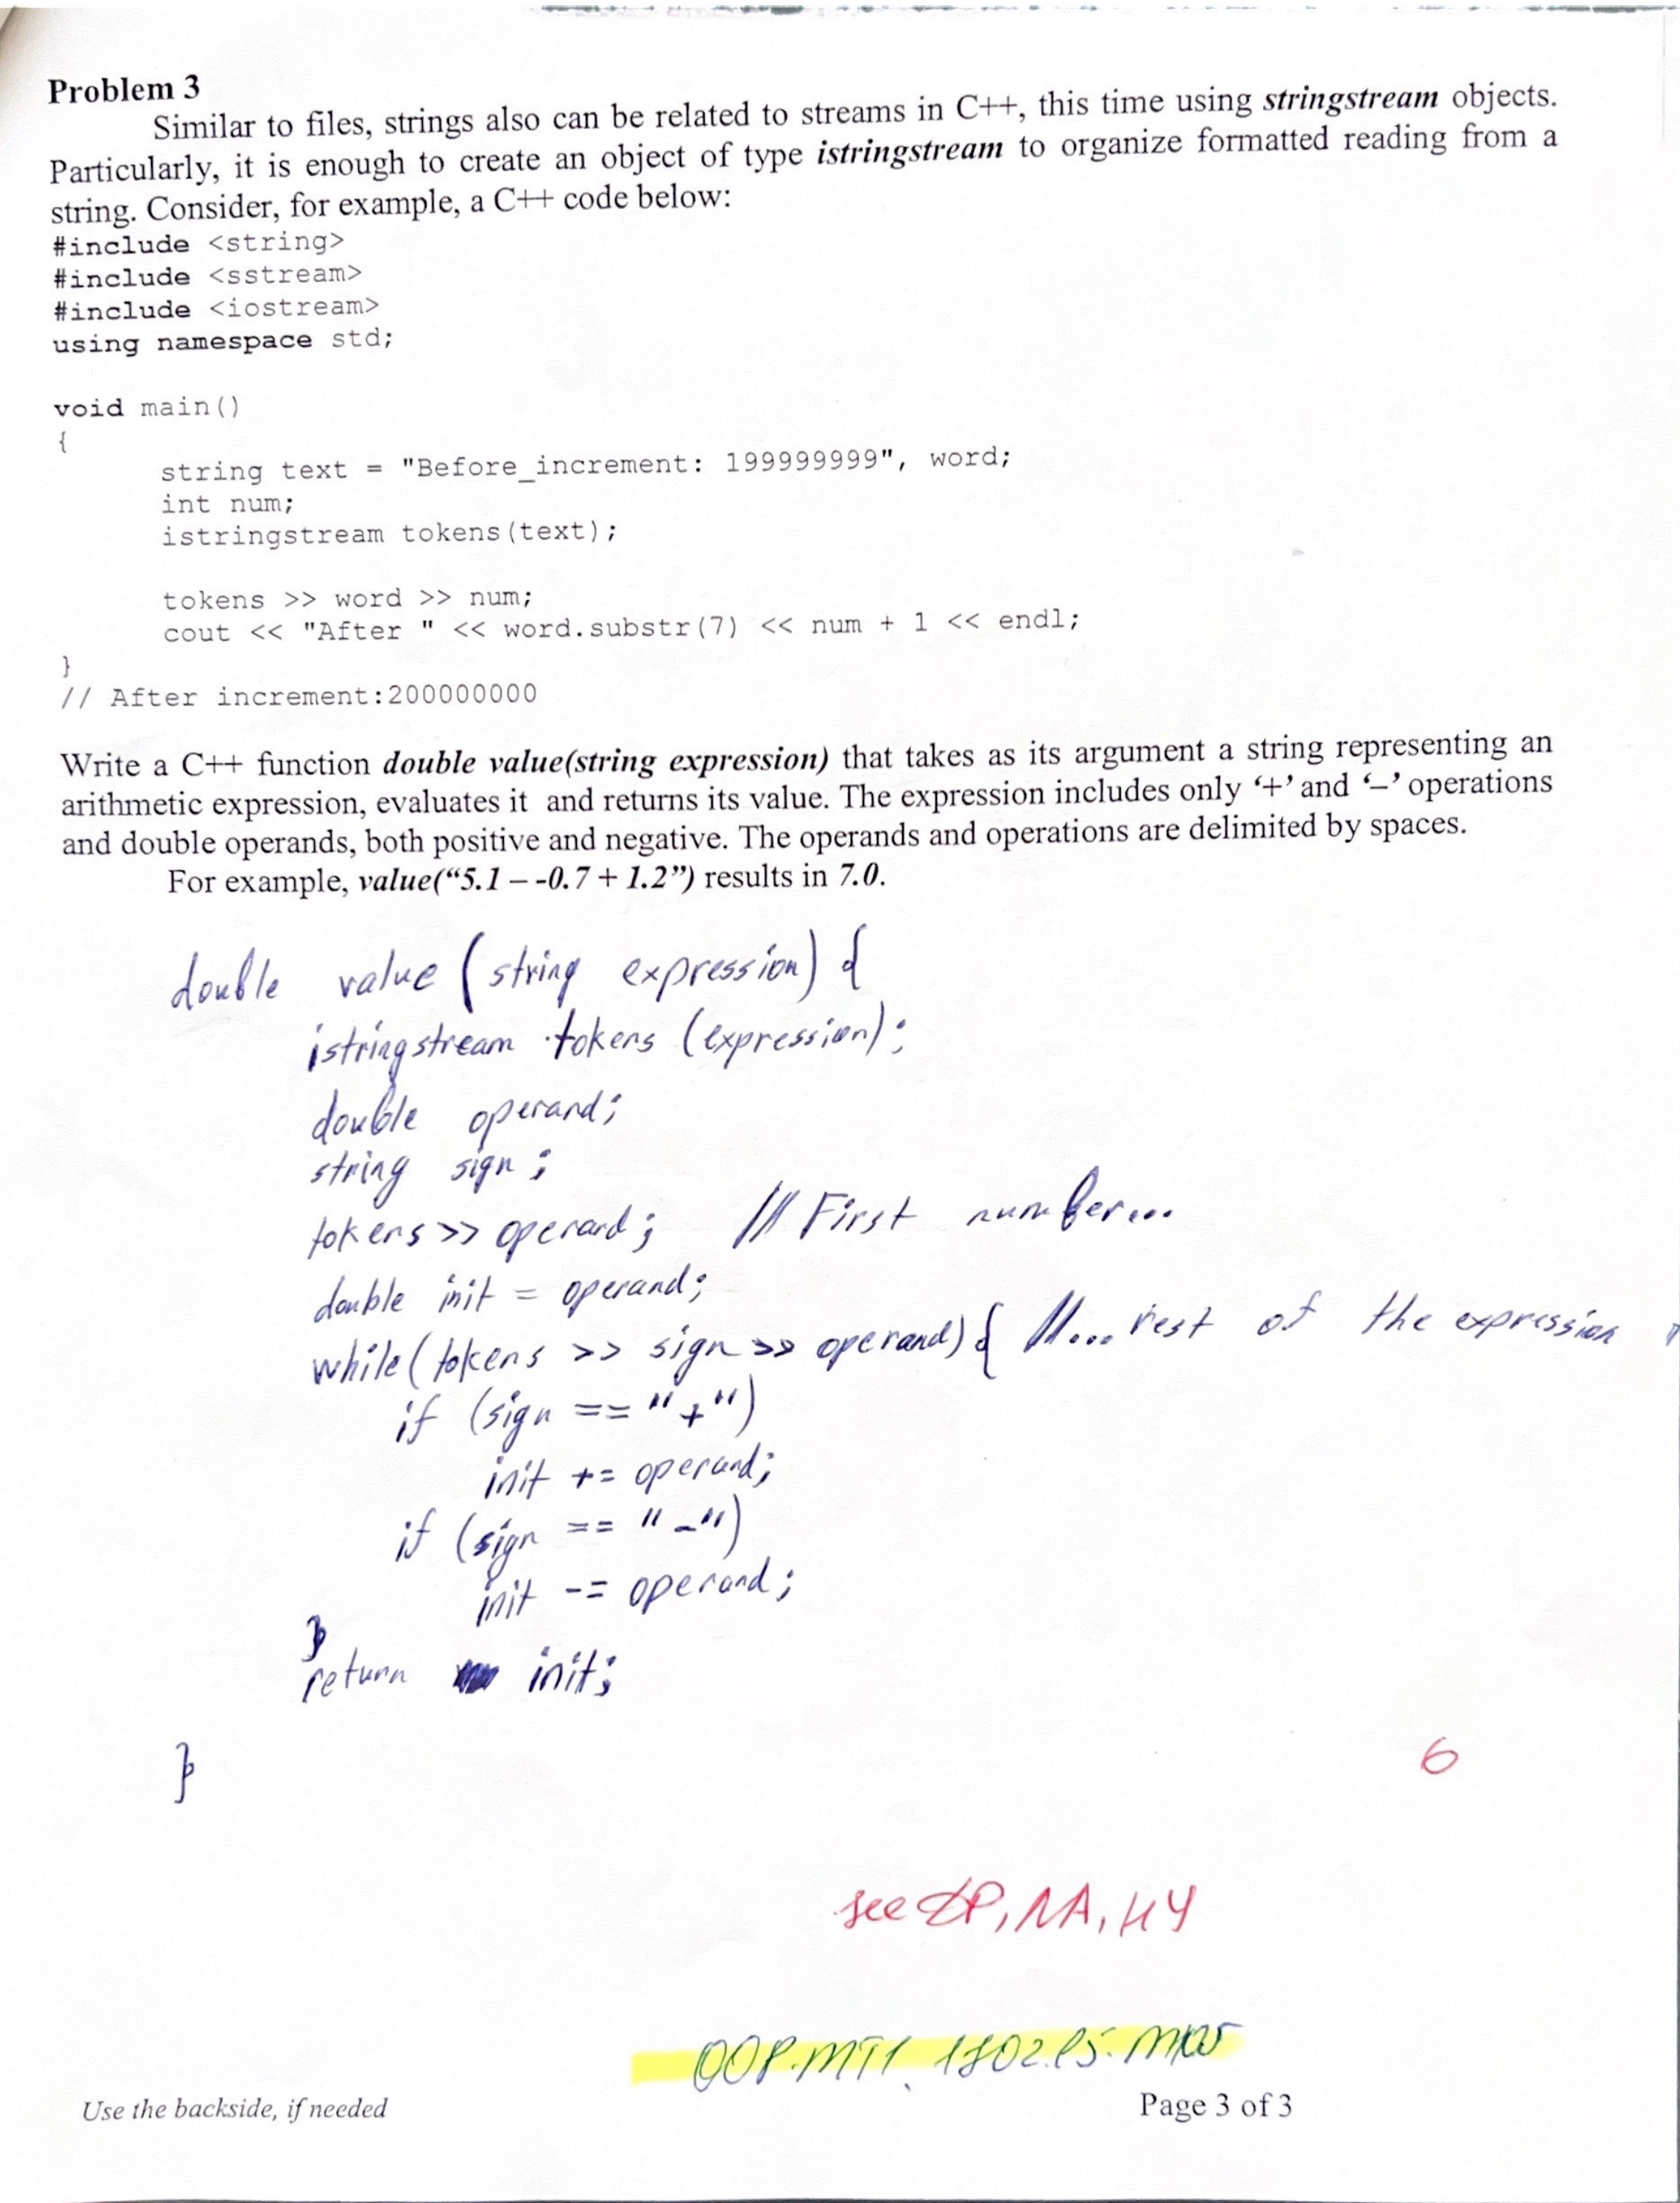 Problem 3
Similar to files, strings also can be related to streams in C++, this time using stringstream objects.
Particularly, it is enough to create an object of type istringstream to organize formatted reading from a
string. Consider, for example, a C++ code below:
#include <string>
#include <sstream>
#include <iostream>
using namespace std;
void main()
{
string text = "Before_increment: 199999999", word;
int num;
istringstream tokens(text);
tokens >> word >> num;
cout << "After " << word.substr(7) << num + 1 << endl;
}
// After increment:200000000
Write a C++ function double value(string expression) that takes as its argument a string representing an
arithmetic expression, evaluates it and returns its value. The expression includes only ‘+’ and ‘–’ operations
and double operands, both positive and negative. The operands and operations are delimited by spaces.
For example, value(“5.1 – -0.7 + 1.2”) results in 7.0.
double value (string expression) {
istringstream tokens (expression);
double operand;
string sign;
tokens >> operand; // First number...
double init = operand;
while (tokens >> sign >> operand) { //... rest of the expression
if (sign == "+")
init += operand;
if (sign == "-")
init -= operand;
}
return init;
}
6
see
Use the backside, if needed
Page 3 of 3